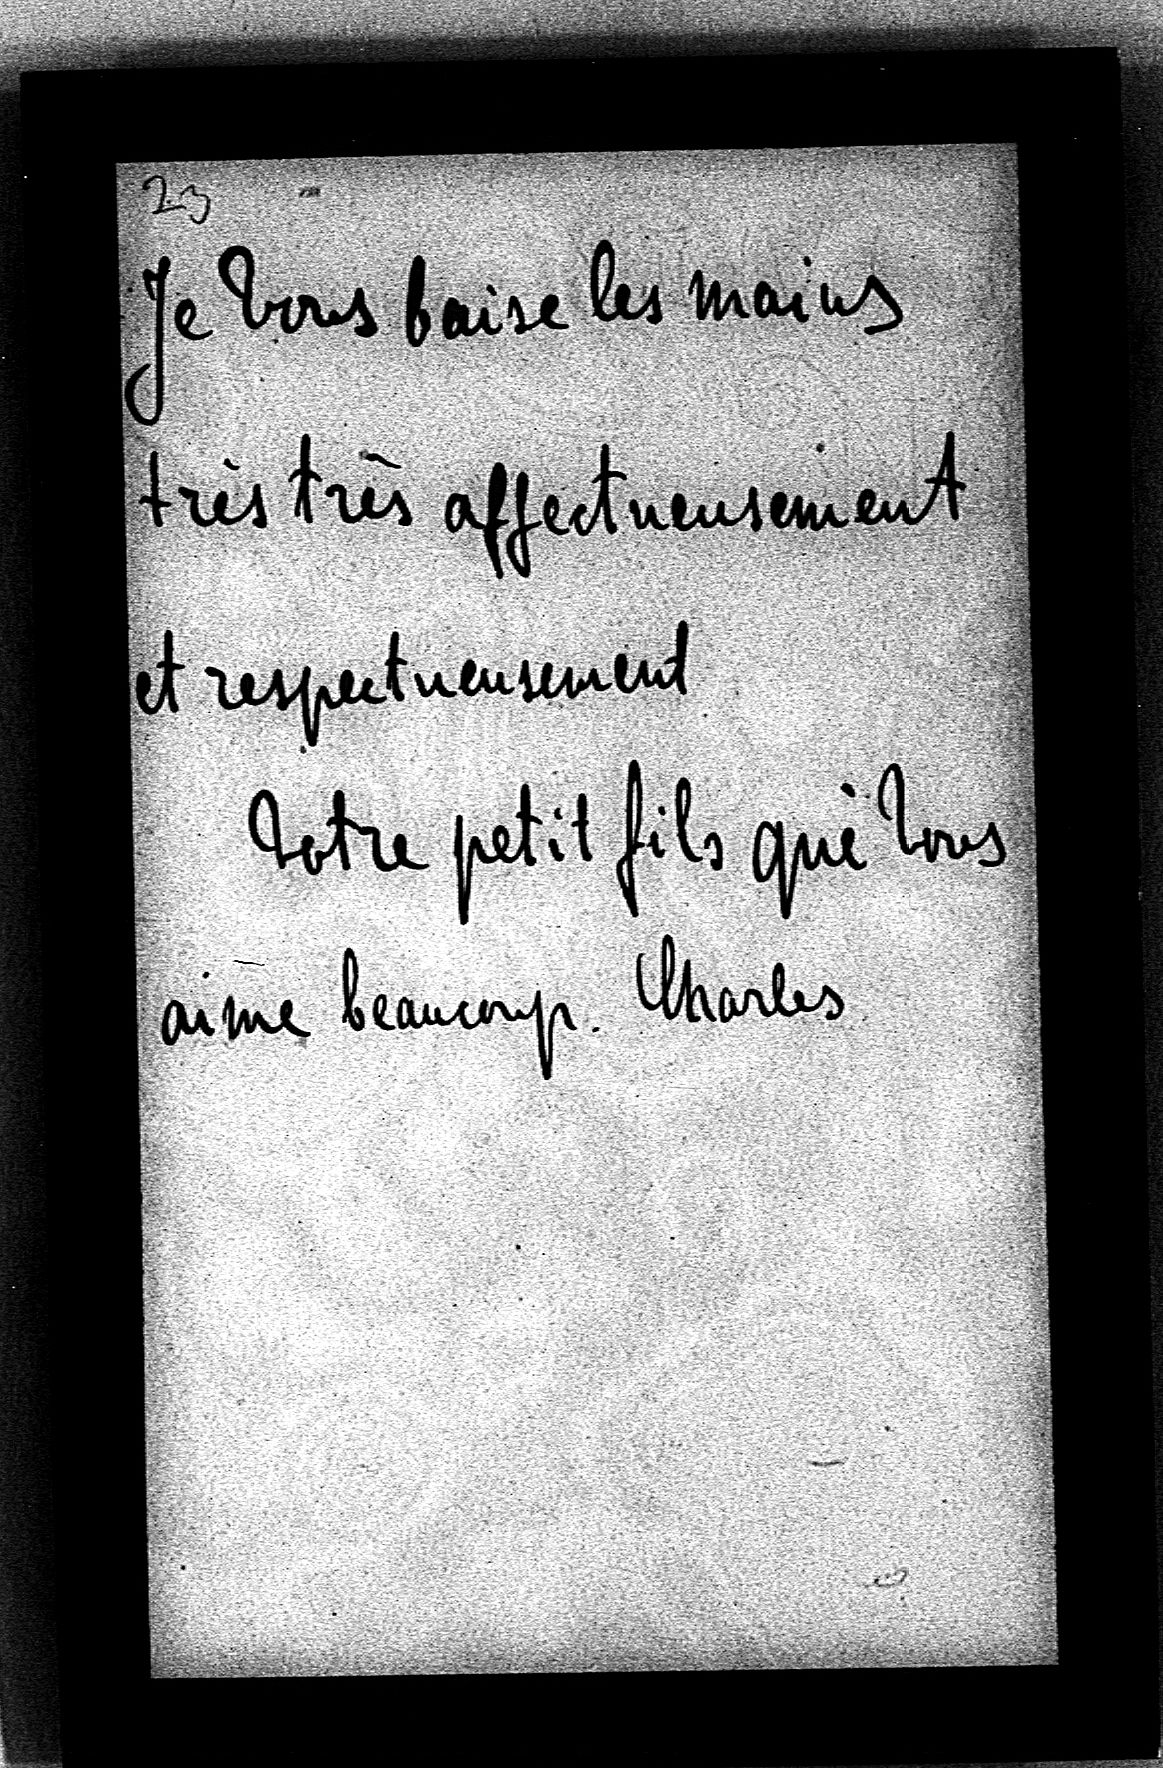 23
Je vous baise les mains
très très affectueusement
et respectueusement
Votre petit fils qui vous
aime beaucoup. Charles